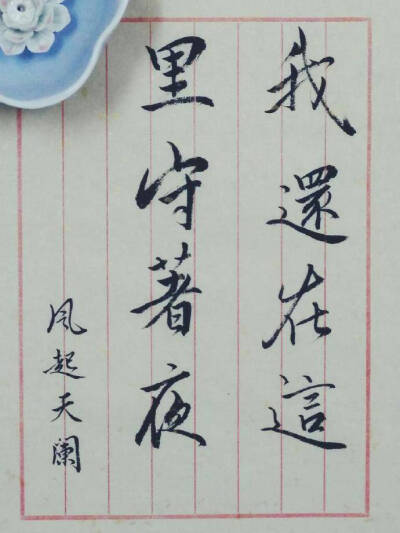 我還在這
里守著夜
风起天阑